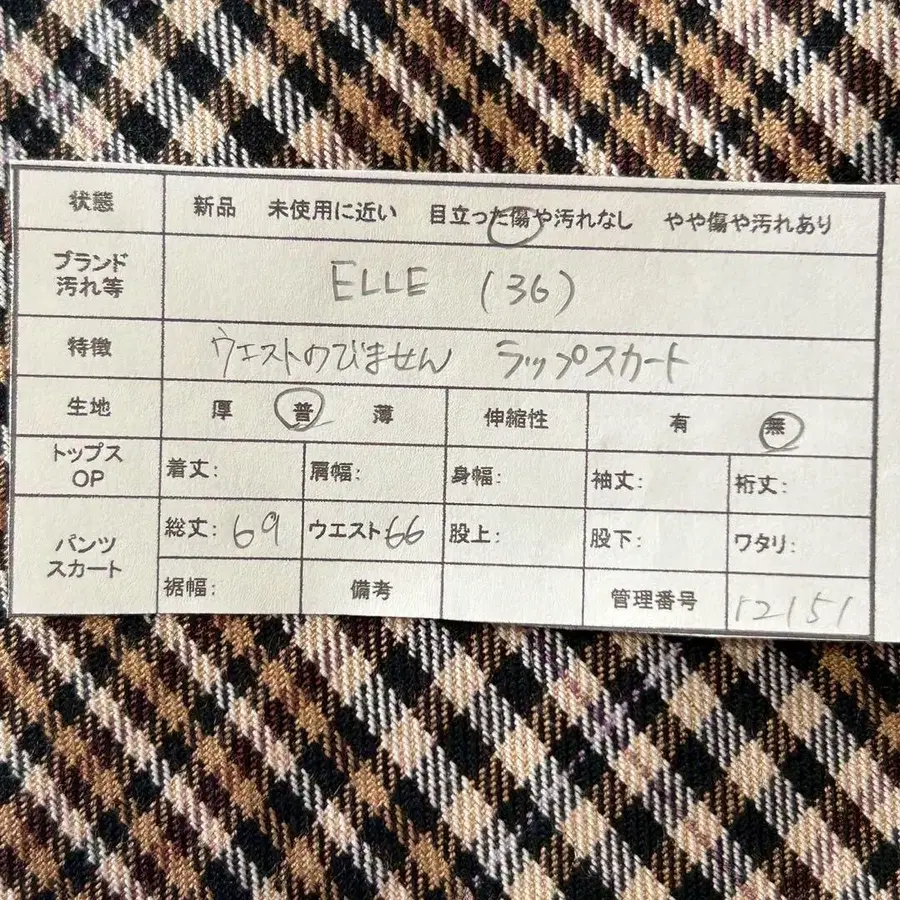 状態 新品 未使用に近い 目立った傷や汚れなし やや傷や汚れあり
ブランド 汚れ等 ELLE (36)
特徴 ウエストのびません ラップスカート
生地 厚 普 薄 伸縮性 有 無
トップス OP 着丈: 肩幅: 身幅: 袖丈: 裄丈:
パンツ スカート 総丈: 69 ウエスト 66 股上: 股下: ワタリ:
裾幅: 備考 管理番号 12151